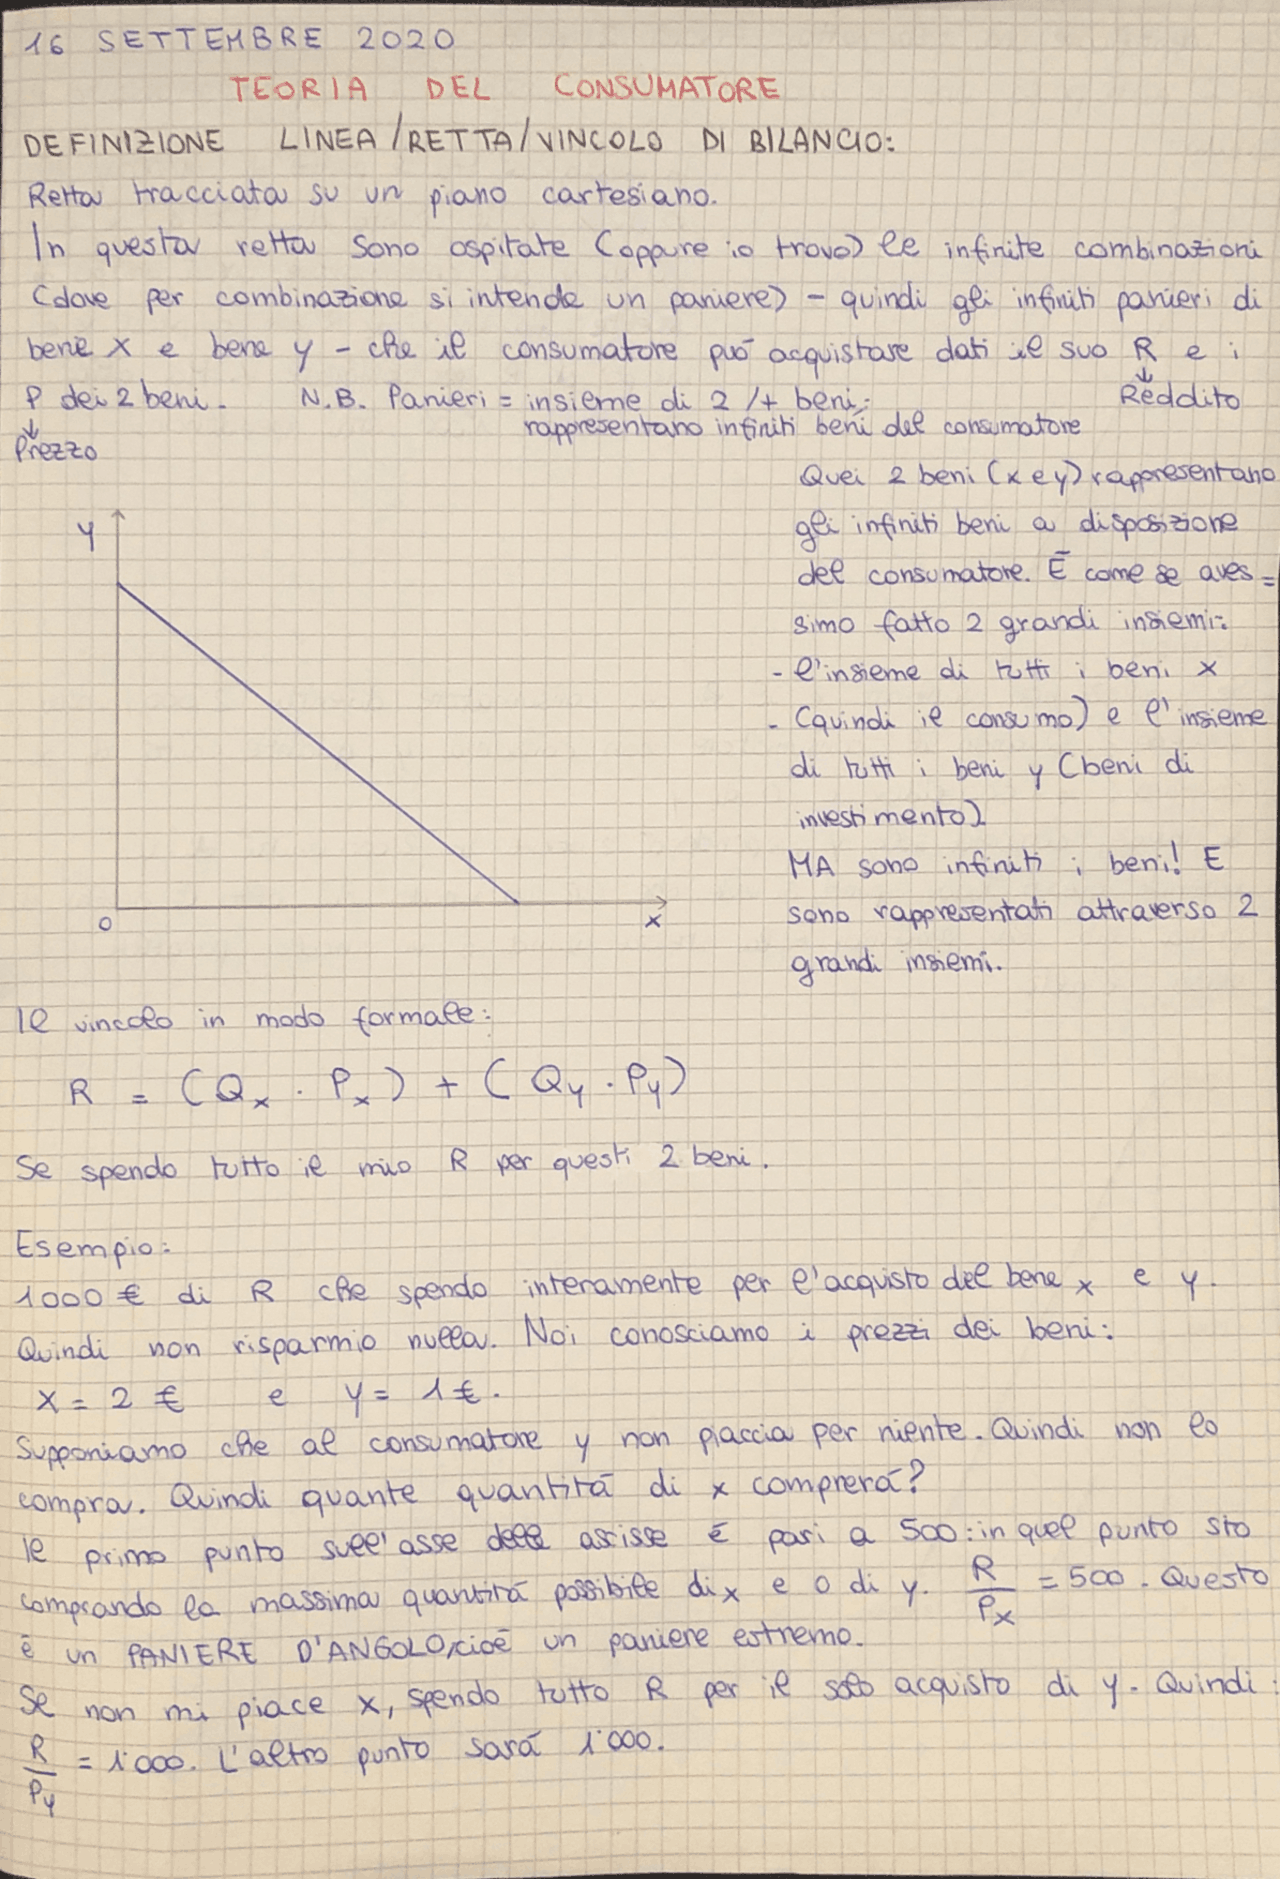 16 SETTEMBRE 2020
TEORIA DEL CONSUMATORE
DEFINIZIONE LINEA/RETTA/VINCOLO DI BILANCIO:
Retta tracciata su un piano cartesiano.
In questa retta sono ospitate (oppure io trovo) le infinite combinazioni
(dove per combinazione si intende un paniere) - quindi gli infiniti panieri di
bene x e bene y - che il consumatore può acquistare dati il suo R e i
P dei 2 beni. N.B. Panieri = insieme di 2 /+ beni;
Reddito
rappresentano infiniti beni del consumatore
Prezzo
Quei 2 beni (x e y) rappresentano
gli infiniti beni a disposizione
del consumatore. È come se aves=
simo fatto 2 grandi insiemi:
- l'insieme di tutti i beni x
- (quindi il consumo) e l'insieme
di tutti i beni y (beni di
investimento)
MA sono infiniti i beni! E
sono rappresentati attraverso 2
grandi insiemi.
y
0
x
Il vincolo in modo formale:
R = (Qx · Px) + (Qy · Py)
Se spendo tutto il mio R per questi 2 beni.
Esempio:
1000 € di R che spendo interamente per l'acquisto del bene x e y.
Quindi non risparmio nulla. Noi conosciamo i prezzi dei beni:
x = 2 € e y = 1 €.
Supponiamo che al consumatore y non piaccia per niente. Quindi non lo
compra. Quindi quante quantità di x comprerà?
Il primo punto sull'asse delle ascisse è pari a 500: in quel punto sto
comprando la massima quantità possibile di x e 0 di y. R/Px = 500. Questo
è un PANIERE D'ANGOLO, cioè un paniere estremo.
Se non mi piace x, spendo tutto R per il solo acquisto di y. Quindi:
R/Py = 1'000. L'altro punto sarà 1'000.